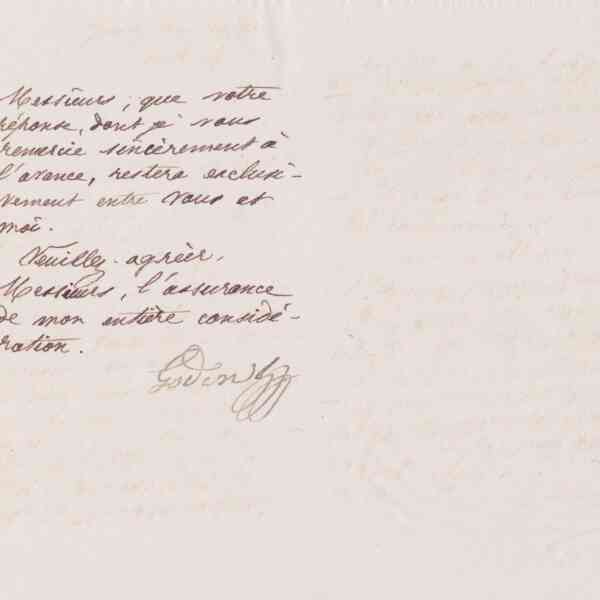 Messieurs, que votre
réponse, dont je vous
remercie sincèrement à
l'avance, restera exclusi-
vement entre vous et
moi.
Veuillez agréer,
Messieurs, l'assurance
de mon entière considé-
ration.
Godin